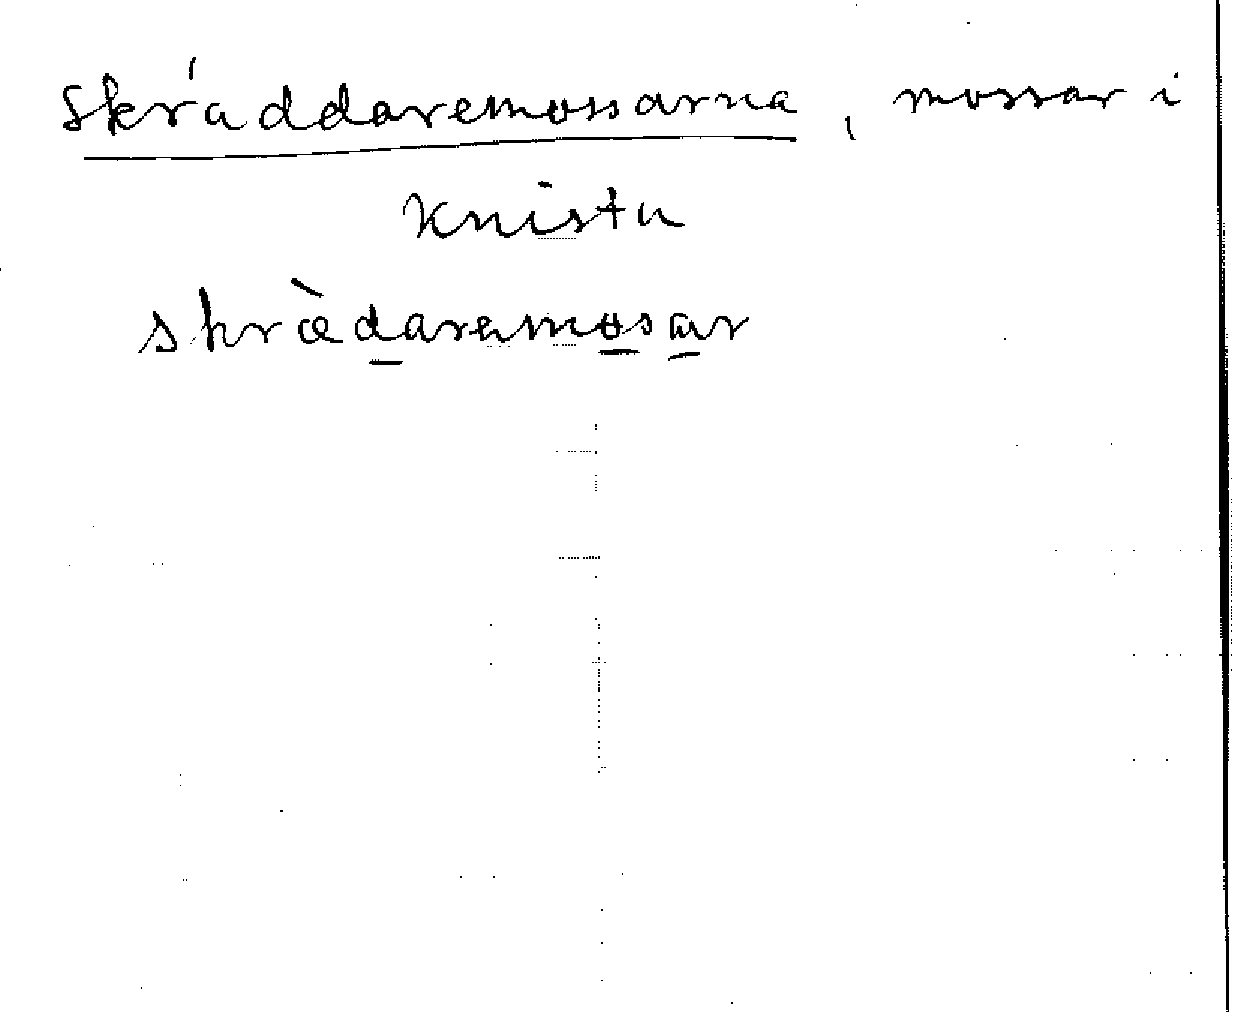 Skräddaremossarna, mossar i
Knista
skræ̀daremosar